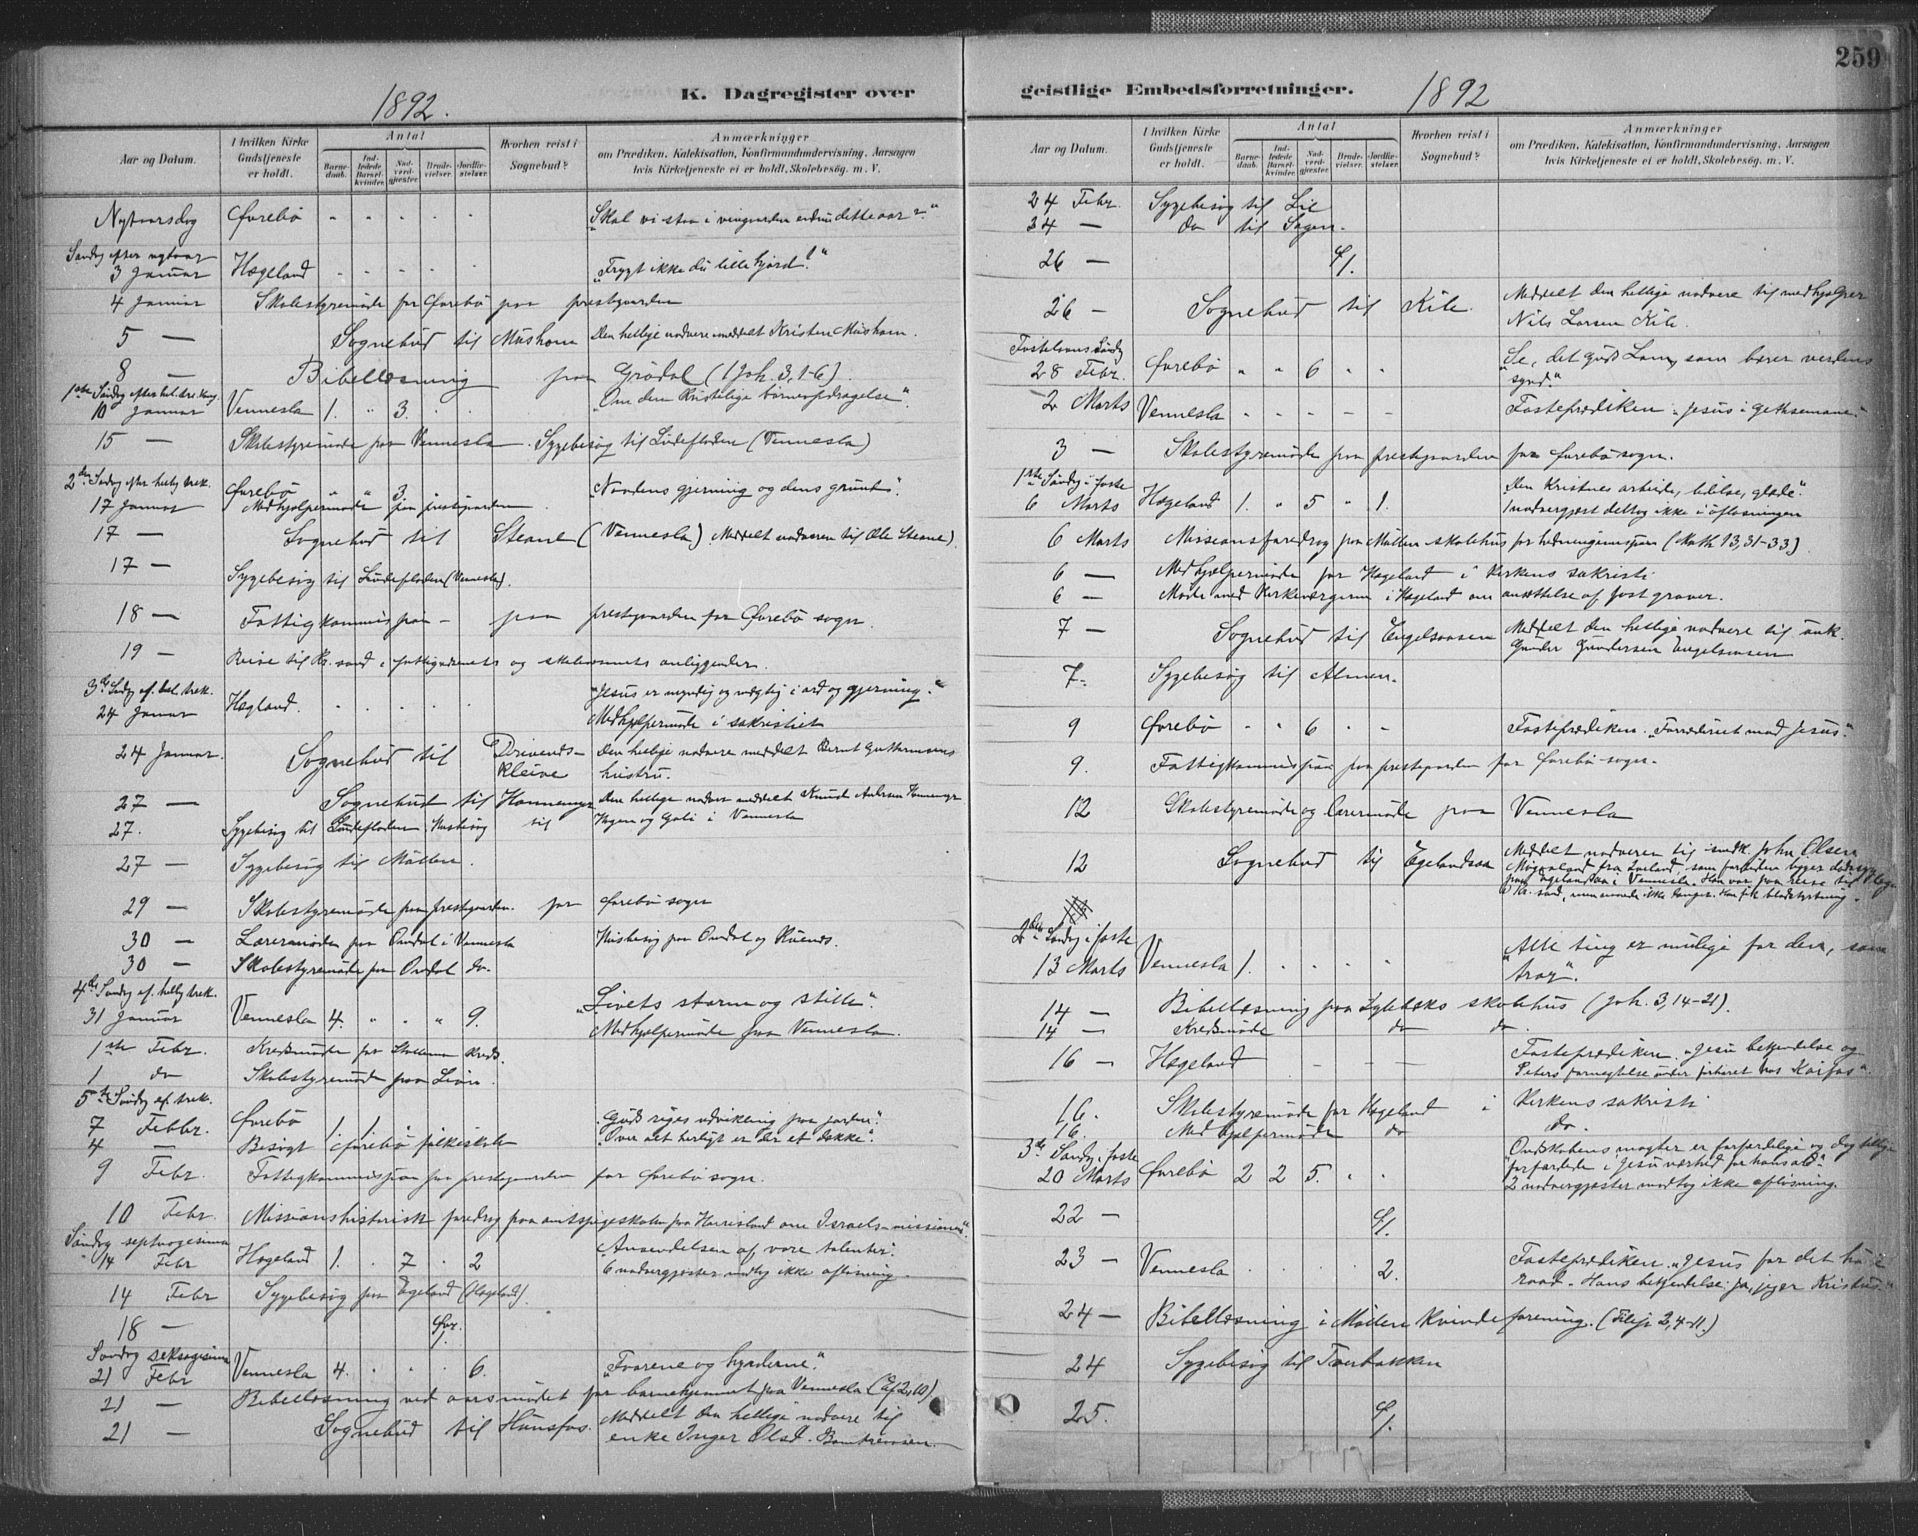 1892.
K. Dagregister over
Aar og Datum.
I hvilken Kirke Gudstjeneste er holdt.
Antal
Barnedaab.
Indledede Barselkvinder.
Nadverdgjester.
Brudevielser.
Jordfæstelser.
Hvorhen reist i Sognebud?
Anmærkninger
om Prædiken, Katekisation, Konfirmandundervisning, Aarsagen
hvis Kirketjeneste ei er holdt, Skolebesøg. m. V.
Nytaarsdag Øvrebö " " " " " "Skal vi staa i vingaarden endnu dette aar?"
Søndag efter nytaar
3 Januar Hægeland - - - - - "Frygt ikke du lille hjord!"
4 Januar Skolestyremöde for Øvrebö paa prestgaarden
5 — Sognebud til Mushom Den hellige nadvere meddelt Kristen Mushom.
8 — Bibellæsning paa Grödal (1 Joh. 3, 1-6)
1ste Söndag efter hel. tre kong.
10 Januar Vennesla 1. " 3. . . "Om den kristelige börneopdragelse".
15 — Skolestyremöde paa Vennesla. Sygebesög til Lindefladen (Vennesla)
2den Söndag efter hellig trek.
17 Januar Øvrebö " " 3. "Naadens gjerning og dens grunt".
Medhjælpermöde paa prestgaarden.
17 — Sognebud til Steane (Vennesla). Meddelt nadveren til Ole Steane).
17 — Sygebesög til Lindefladen (Vennesla).
18 — Fattigkommisjion - paa prestgaarden for Øvrebö sogn.
19 — Reise til Kr.sand i fattigvæsenets og skolevæsnets anliggender.
3de Söndag ef. hel. trek.
24 Januar Hægland. . . . . . "Jesus er myndig og mægtig i ord og gjerning."
Medhjælpermöde i sakristiet
24 Januar. Sognebud til Drivendskleive Den hellige nadvere meddelt Bernt Guthormsens
hustru.
27 — Sognebud til Honnemyr Den hellige nadvere meddelt Knud Honnemyr
27. Sygebesög til Lindefladen, Husbesög til Hagen og Gali i Vennesla
27 — Sygebesög til Mölten.
29 — Skolestyremöde paa prestgaarden. for Øvrebö sogn
30 — Lærermöde paa Omdal i Vennesla Husbesög paa Omdal og Kuends.
30 — Skolestyremöde paa Omdal do.
4de Söndag ef. hellig trek.
31 Januar Vennesla 4. " " " 9. "Livets storm og stille".
Medhjælpermöde paa Vennesla.
1ste Febr. Kredsmöde for kreds.
1 do Skolestyremöde paa
5te Söndag ef. trek.
7 Febbr. Øvrebö 1. 1. "Guds riges udvikling paa jorden".
4 — Besögt Øvrebö folkeskole "Over alt herligt er der et dække".
9 Febr. Fattigkommisjion paa prestegaarden for Øvrebö sogn.
10 Febr. Missionshistorisk foredrag paa amtspigeskolen paa Harrisland om "Israels-missionen".
Söndag septuagesima
14 Febr Hægeland 1. . 7 . 2 "Anvendelsen af vore talenter".
6 nadvergjester modtog ikke aflösning.
14 Febr Sygebesög paa Egeland (Hægeland).
18 —
Søndag seksagesima
21 Febr Vennesla 4. . . . 6. "Faarene og hyrderne".
21 — Bibellæsning ved aarsmödet for barnehjemmet paa Vennesla (Ef 2, 10)
21 — Sognebud til Hunsfos. Meddelt den hellige nadvere til
enke Inger Olsd.
259
geistlige Embedsforretninger.
1892
Aar og Datum.
I hvilken Kirke Gudstjeneste er holdt.
Antal
Barnedaab.
Indledede Barselkvinder.
Nadverdgjester.
Brudevielser.
Jordfæstelser.
Hvorhen reist i Sognebud?
Anmærkninger
om Prædiken, Katekisation, Konfirmandundervisning, Aarsagen
hvis Kirketjeneste ei er holdt, Skolebesøg. m. V.
24 Febr. Sygebesög til Lie
24 — do til Sagen.
26 —
26 — Sognebud til Kile. Meddelt den hellige nadvere til medhjælper
Nils Larsen Kile.
Fastelavns Söndag
28 Febr. Øvrebö " " 6 " " "Se, det Guds Lam, som bærer verdens
synd."
2 Marts Vennesla - - - - - Fasteprædiken. "Jesus i Gethsemane."
3 — Skolestyremöde paa prestgaarden for Øvrebö sogn.
1ste Söndag i faste
6 Marts Hægeland 1. " 5 " 1. "Den kristnes arbeide, lidelse, glæde".
1 nadvergjest deltog ikke i aflösningen
6 Marts Missionsforedrag paa Mölten skolehus for hedningemission (Math 13, 31-33.)
6 — Medhjælpermöde for Hægeland i kirkens sakristi
6 — Möde med kirkeværgerne i Hægeland om ansættelse af fast graver.
7 — Sognebud til Engelsaasen Meddelt den hellige nadvere til unk.
Gunder Gundersen Engelsaasen
7- Sygebesög til Almen.
9 Øvrebö " " 6 " - Fasteprædiken. "Forræderiet mod Jesus".
9. Fattigkommisjion paa prestegaarden for Øvrebö-sogn.
12 Skolestyremöde og lærermöde paa Vennesla
12 Sognebud til Egelandsaa Meddelt nadveren til John Olsen
fra som for tiden ligger dödssyg
paa Egelandsaa i Vennesla. Han var paa reise til læge
i Kr.sand, men orkede ikke længer. Han fik blodstyrtning.
2den Söndag i faste
13 Marts Vennesla 1. . . . . "Alle ting er mulige for den, som
tror".
14 — Bibellæsning paa skolehus (Joh. 3, 14-21).
14 — Kredsmöde do do.
16 — Hægeland - - - Fasteprædiken. "Jesu bekjendelse og
Peters fornegtelse under forhöret hos Kaifas".
16. Skolestyremöde for Hægeland i kirkens sakristi
16. Medhjælpermöde do do.
3de Söndag i faste
20 Marts Øvrebö 2 2 5. . . "Ondskabens magter er forfærdelige og dog bliver
forfærdede i Jesu nærhed for hans ord".
2 nadvergjæster modtog ikke aflösning.
22 —
23 — Vennesla . . . . 2. Fasteprædiken. "Jesus for det höie
raad. Hans bekjendelse: ja, jeg er Kristus."
24 — Bibellæsning i Mölten kvindeforening. (Filip 2, 4-11.)
24 Sygebesög til Tverbakken
25.